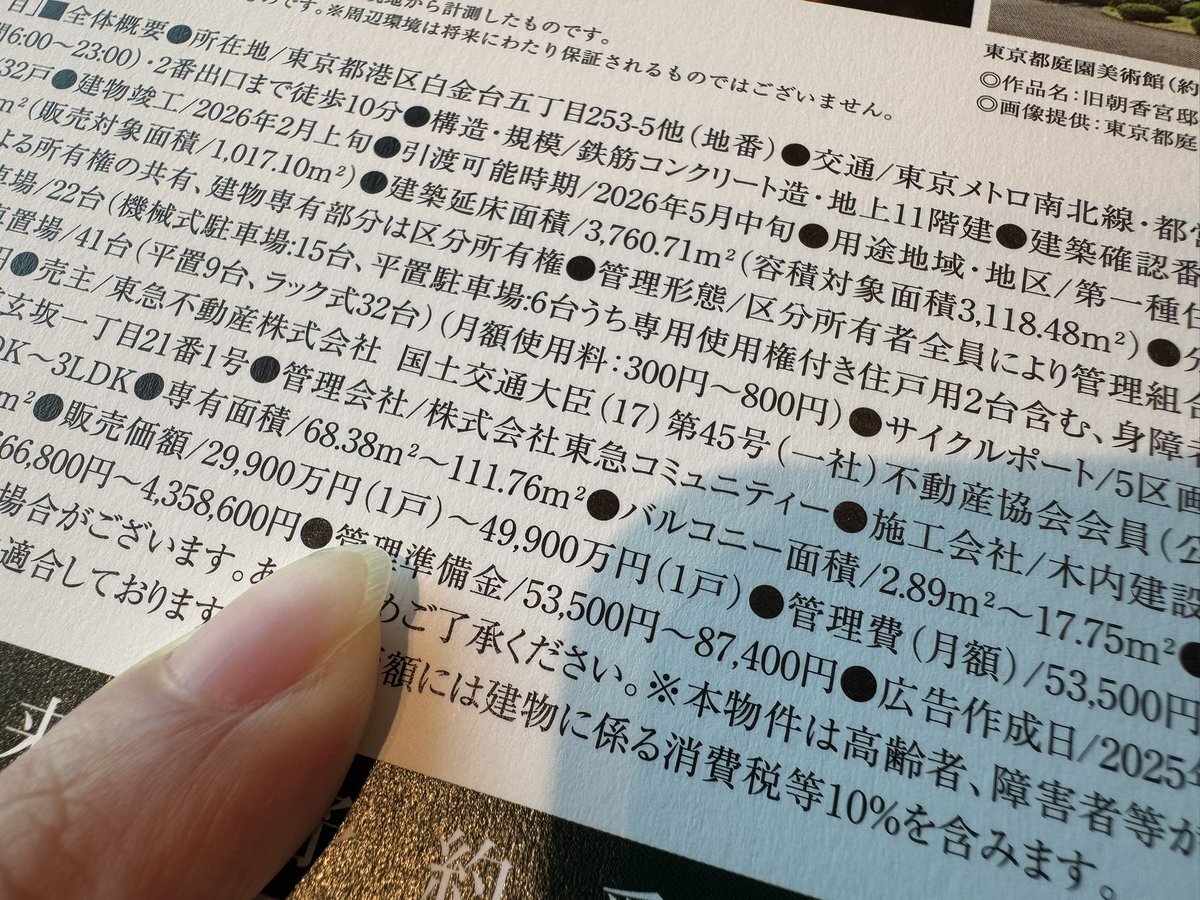 地から計測したものです。
のです。※周辺環境は将来にわたり保証されるものではございません。
目」■全体概要●所在地/東京都港区白金台五丁目253-5他(地番)●交通/東京メトロ南北線・都営
間6:00～23:00)・2番出口まで徒歩10分●構造・規模/鉄筋コンクリート造・地上11階建●建築確認番
32戸●建物竣工/2026年2月上旬●引渡可能時期/2026年5月中旬●用途地域・地区/第一種住
m²(販売対象面積/1,017.10m²)●建築延床面積/3,760.71m²(容積対象面積3,118.48m²)●分
よる所有権の共有、建物専有部分は区分所有権●管理形態/区分所有者全員により管理組合
車場/22台(機械式駐車場:15台、平置駐車場:6台うち専用使用権付き住戸用2台含む、身障者
置場/41台(平置9台、ラック式32台)(月額使用料:300円～800円)●サイクルポート/5区画
日●売主/東急不動産株式会社 国土交通大臣(17)第45号(一社)不動産協会会員(公
玄坂一丁目21番1号●管理会社/株式会社東急コミュニティー●施工会社/木内建設
DK～3LDK●専有面積/68.38m²～111.76m²●バルコニー面積/2.89m²～17.75m²●
m²●販売価額/29,900万円(1戸)～49,900万円(1戸)●管理費(月額)/53,500円
66,800円～4,358,600円●管理準備金/53,500円～87,400円●広告作成日/2025年
場合がございます。あ めご了承ください。※本物件は高齢者、障害者等が
適合しております 額には建物に係る消費税等10%を含みます。
東京都庭園美術館(約
◎作品名:旧朝香宮邸
◎画像提供:東京都庭
約